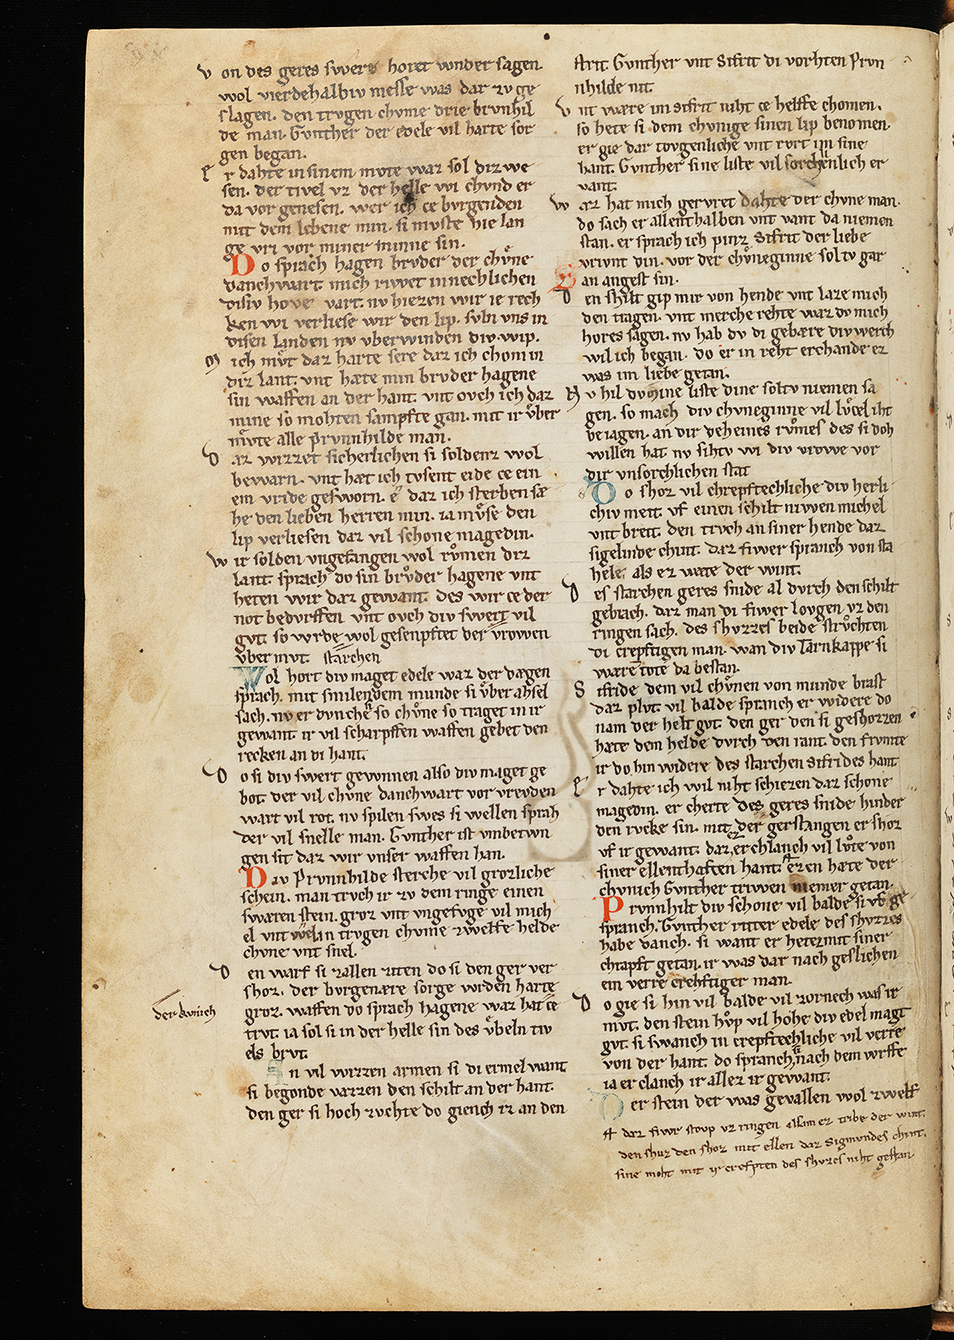 von des geres swere horet wnder sagen.
wol vierdehalbiv messe was dar zv ge
slagen. den trvgen chvme drie brvnhil
de man. Gvnther der edele vil harte sor
gen began.
Er dahte in sinem mvte waz sol diz we
sen. der tivel vz der helle wi chvnd er
da vor genesen. wer ich ce bvrgenden
mit dem lebene min. si mvste hie lan
ge vri vor miner minne sin.
Do sprach hagen brvder der chvͦne
danchwart mich rivvet innechlichen
disiv hove vart. nv hiezen wir ie rech
ken wi verliese wir den lip. svln vns in
disen landen nv vberwinden div wip.
Mich mvͦt daz harte sere daz ich chom in
diz lant. vnt hæte min brvder hagene
sin waffen an der hant. vnt ovch ich daz
mine so mohten sampfte gan. mit ir vͦber
mvͦte alle Prvnnhilde man.
Daz wizzet sicherlichen si soldenz wol
bewarn. vnt hæt ich tvsent eide ce ein
em vride gesworn. e daz ich sterben sæ
he den lieben herren min. ia mvͦse den
lip verliesen daz vil schone magedin.
Wir solden vngefangen wol rvͦmen diz
lant. sprach do sin brvͦder hagene vnt
heten wir daz gewant. des wir ce der
not bedvrffen vnt ovch div swert vil
gvt. so wrde wol gesenpftet der vrowen
vber mvt. starchen
Wol hort div maget edele waz der dægen
sprach. mit smilendem mvnde si vͦber ahsel
sach. nv er dvnche so chvͦne so traget in ir
gewant ir vil scharpffen waffen gebet den
recken an di hant.
Do si div swert gevvnnen also div maget ge
bot. der vil chvͦne danchwart vor vrevden
wart vil rot. nv spilen swes si wellen sprah
der vil snelle man. Gvnther ist vmbetwn
gen sit daz wir vnser waffen han.
Div Prvnnhilde sterche vil grozliche
schein. man trvch ir zv dem ringe einen
swæren stein. groz vnt vngefvge vil mich
el vnt wel in trvgen chvme zwelffe helde
chvne vnt snel.
Den warf si zallen ziten do si den ger ver
shoz. der bvrgenære sorge wrden harte
groz. waffen do sprach hagene waz hat ce
trvt. ia sol si in der helle sin des vͦbeln tiv
els brvt.
An vil wizzen armen si di ermel want
si begonde vazzen den schilt an der hant.
den ger si hoch zvchte do giench iz an den
der kvnich
strit. Gvnther vnt Sifrit di vorhten Prvn
nhilde nit.
Vnt wære im Sifrit niht ce helffe chomen.
so hete si dem chvnige sinen lip benomen.
er gie dar tovgenliche vnt rvrt im sine
hant. Gvnther sine liste vil sorchenlich er
vant.
Waz hat mich gervret dahte der chvne man.
do sach er allenthalben vnt vant da niemen
stan. er sprach ich pinz Sifrit der liebe
vrivnt din. vor der chvͦneginne soltv gar
an angest sin.
Den shilt gip mir von hende vnt laze mich
den tragen. vnt merche rehte waz dv mich
hores sagen. nv hab dv di gebære div werch
wil ich began. do er in reht erchande ez
was im liebe getan.
Nv hil dv mine liste dine soltv niemen sa
gen. so mach div chvneginne vil lvͦcel iht
beiagen. an dir deheines rvͦmes des si doh
willen hat. nv sihtv wi div vrowe vor
dir vnsorchlichen stat
Do shoz vil chrepftechliche div herli
chiv meit. vf einen schilt nivven michel
vnt breit. den trvch an siner hende daz
sigelinde chint. daz fiwer spranch von sta
hele. als ez wæte der wint.
Des starchen geres snide al dvrch den schilt
gebrach. daz man di fiwer lovgen vz den
ringen sach. des shvzzes beide strvͦchten
di crepftigen man. wan div Tarnkappe si
wære tote da bestan.
Sifride dem vil chvͦnen von mvnde brast
daz plvt. vil balde spranch er widere do
nam der helt gvt. den ger den si geshozzen
hæte dem helde dvrch den rant. den frvmte
ir do hin widere des starchen Sifrides hant
Er dahte ich wil niht schiezen daz schone
magedin. er cherte des geres snide hinder
den rvcke sin. mit der gerstangen er shoz
vf ir gewant. daz ez erchlanch vil lvte von
siner ellenthaften hant. ez en hæte der
chvnich Gvnther trivven niemer getan.
Prvnnhilt div schone vil balde si vf ge
spranch. Gvnther ritter edele des shvzzes
habe danch. si want er hetez mit siner
chrapft getan. ir was dar nach geslichen
ein verre crehftiger man.
Do gie si hin vil balde vil zornech was ir
mvt. den stein hvͦp vil hohe div edel magt
gvt. si swanch in crepftechliche vil verre
von der hant. do spranch nach dem wrffe
ia er clanch ir allez ir gewant.
Der stein der was gevallen wol zwelf
daz fiwr stovp vz ringen alsam ez tribe der wint.
den shuz den shoz mit ellen daz Sigmundes chint.
sine moht mit ir crefpten des shvzes niht gestan.